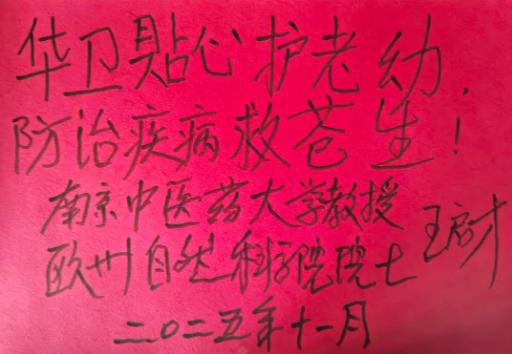 华卫贴心护老幼，
防治疾病救苍生！
南京中医药大学教授
欧州自然科学院院士 王启才
二〇二五年十一月